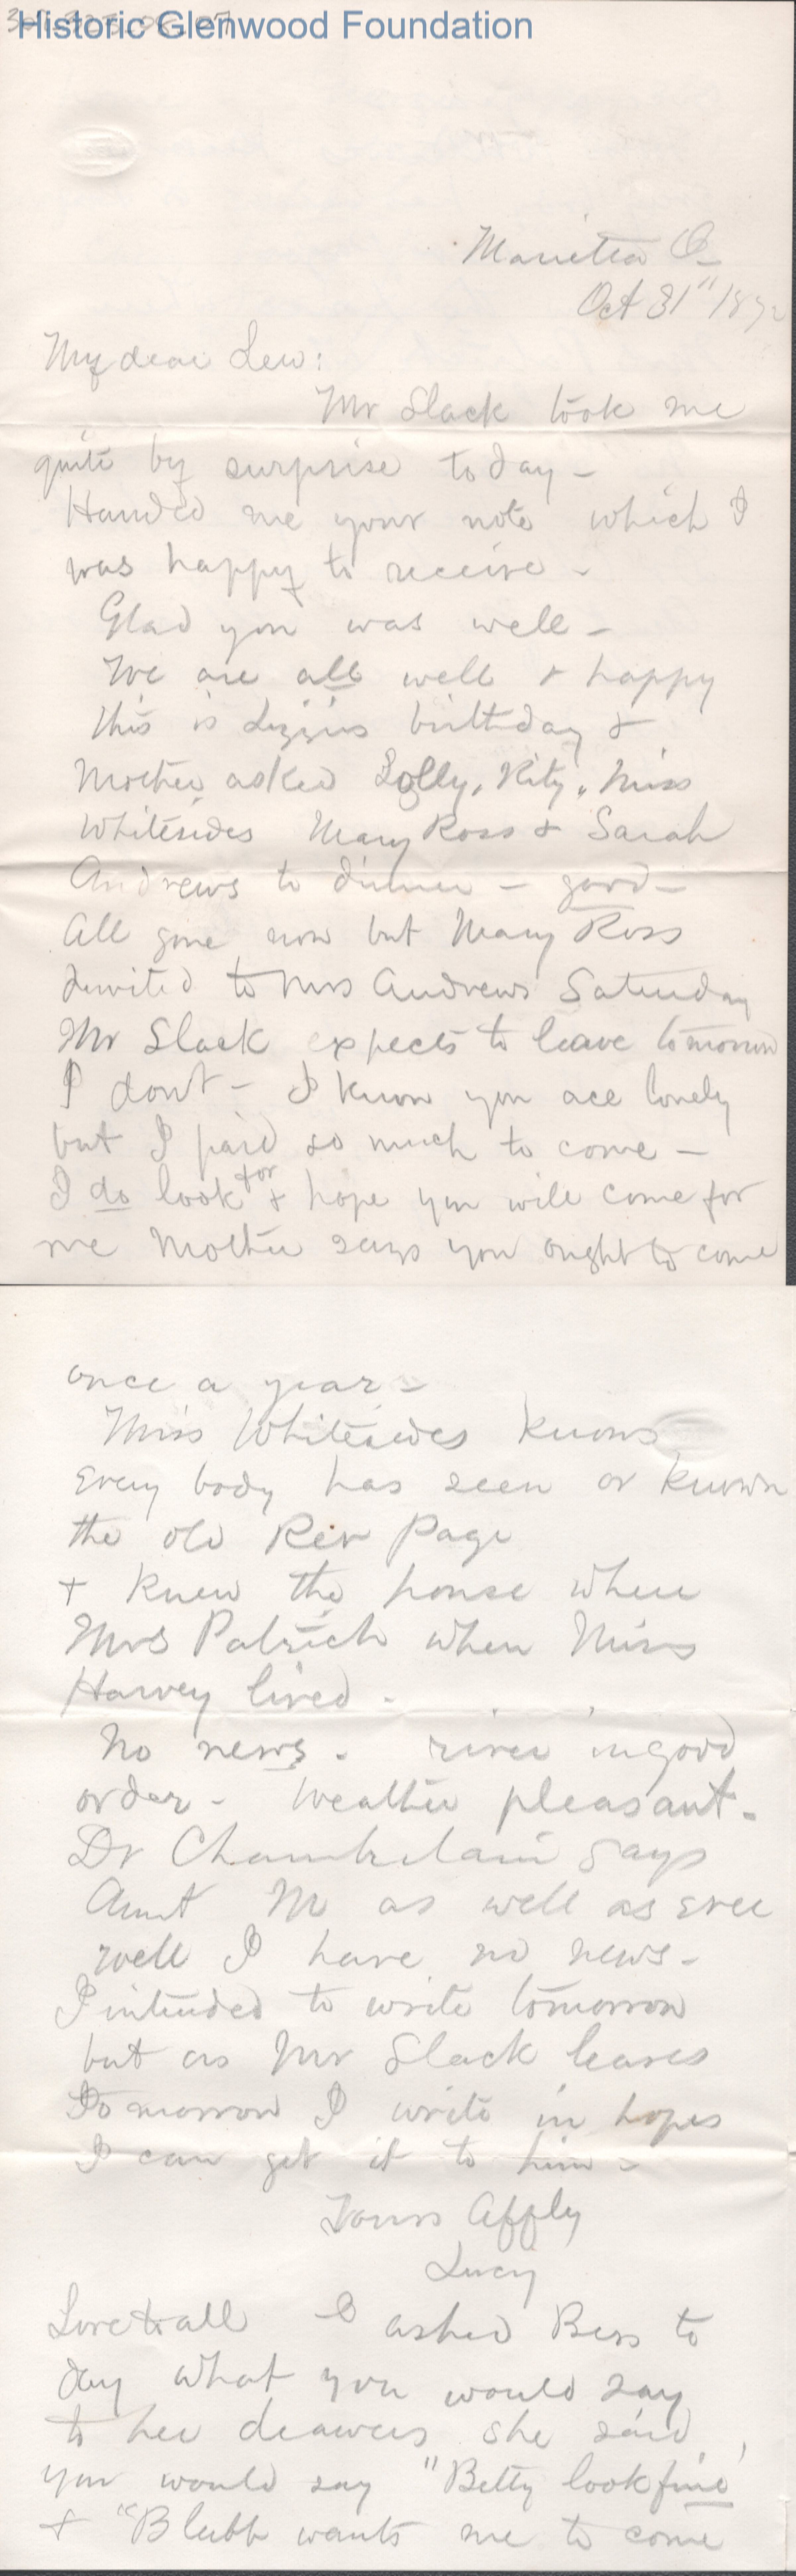 Historic Glenwood Foundation
Marietta O
Oct 31" 187
My dear Lew:
Mr Slack took me
quite by surprise today -
Handed me your note which I
was happy to receive -
Glad you was well -
We are all well + happy
this is Lizzies birthday +
Mother asked Kity, Miss
Whitesides Mary Ross + Sarah
Andrews to dinner - good -
All gone now but Mary Ross
Invited to Mrs Andrews Saturday
Mr Slack expects to leave tomorrow
I dont - I know you are lonely
but I paid so much to come -
I do look for + hope you will come for
me Mother says you ought to come
once a year -
Miss Whitesides knows
Every body has seen or known
the old Rev Page
+ knew the house where
Mrs Patrick when Miss
Harvey lived -
No news - river in good
order - Weather pleasant -
Dr Chamberlain says
Aunt M as well as ever
well I have no news -
I intended to write tomorrow
but as Mr Slack leaves
tomorrow I write in hopes
I can get it to him -
Yours Affly
Lucy
Love to all I asked Bess to
day what you would say
to her drawers she said,
you would say "Betty look fine"
+ "Blubb wants me to come